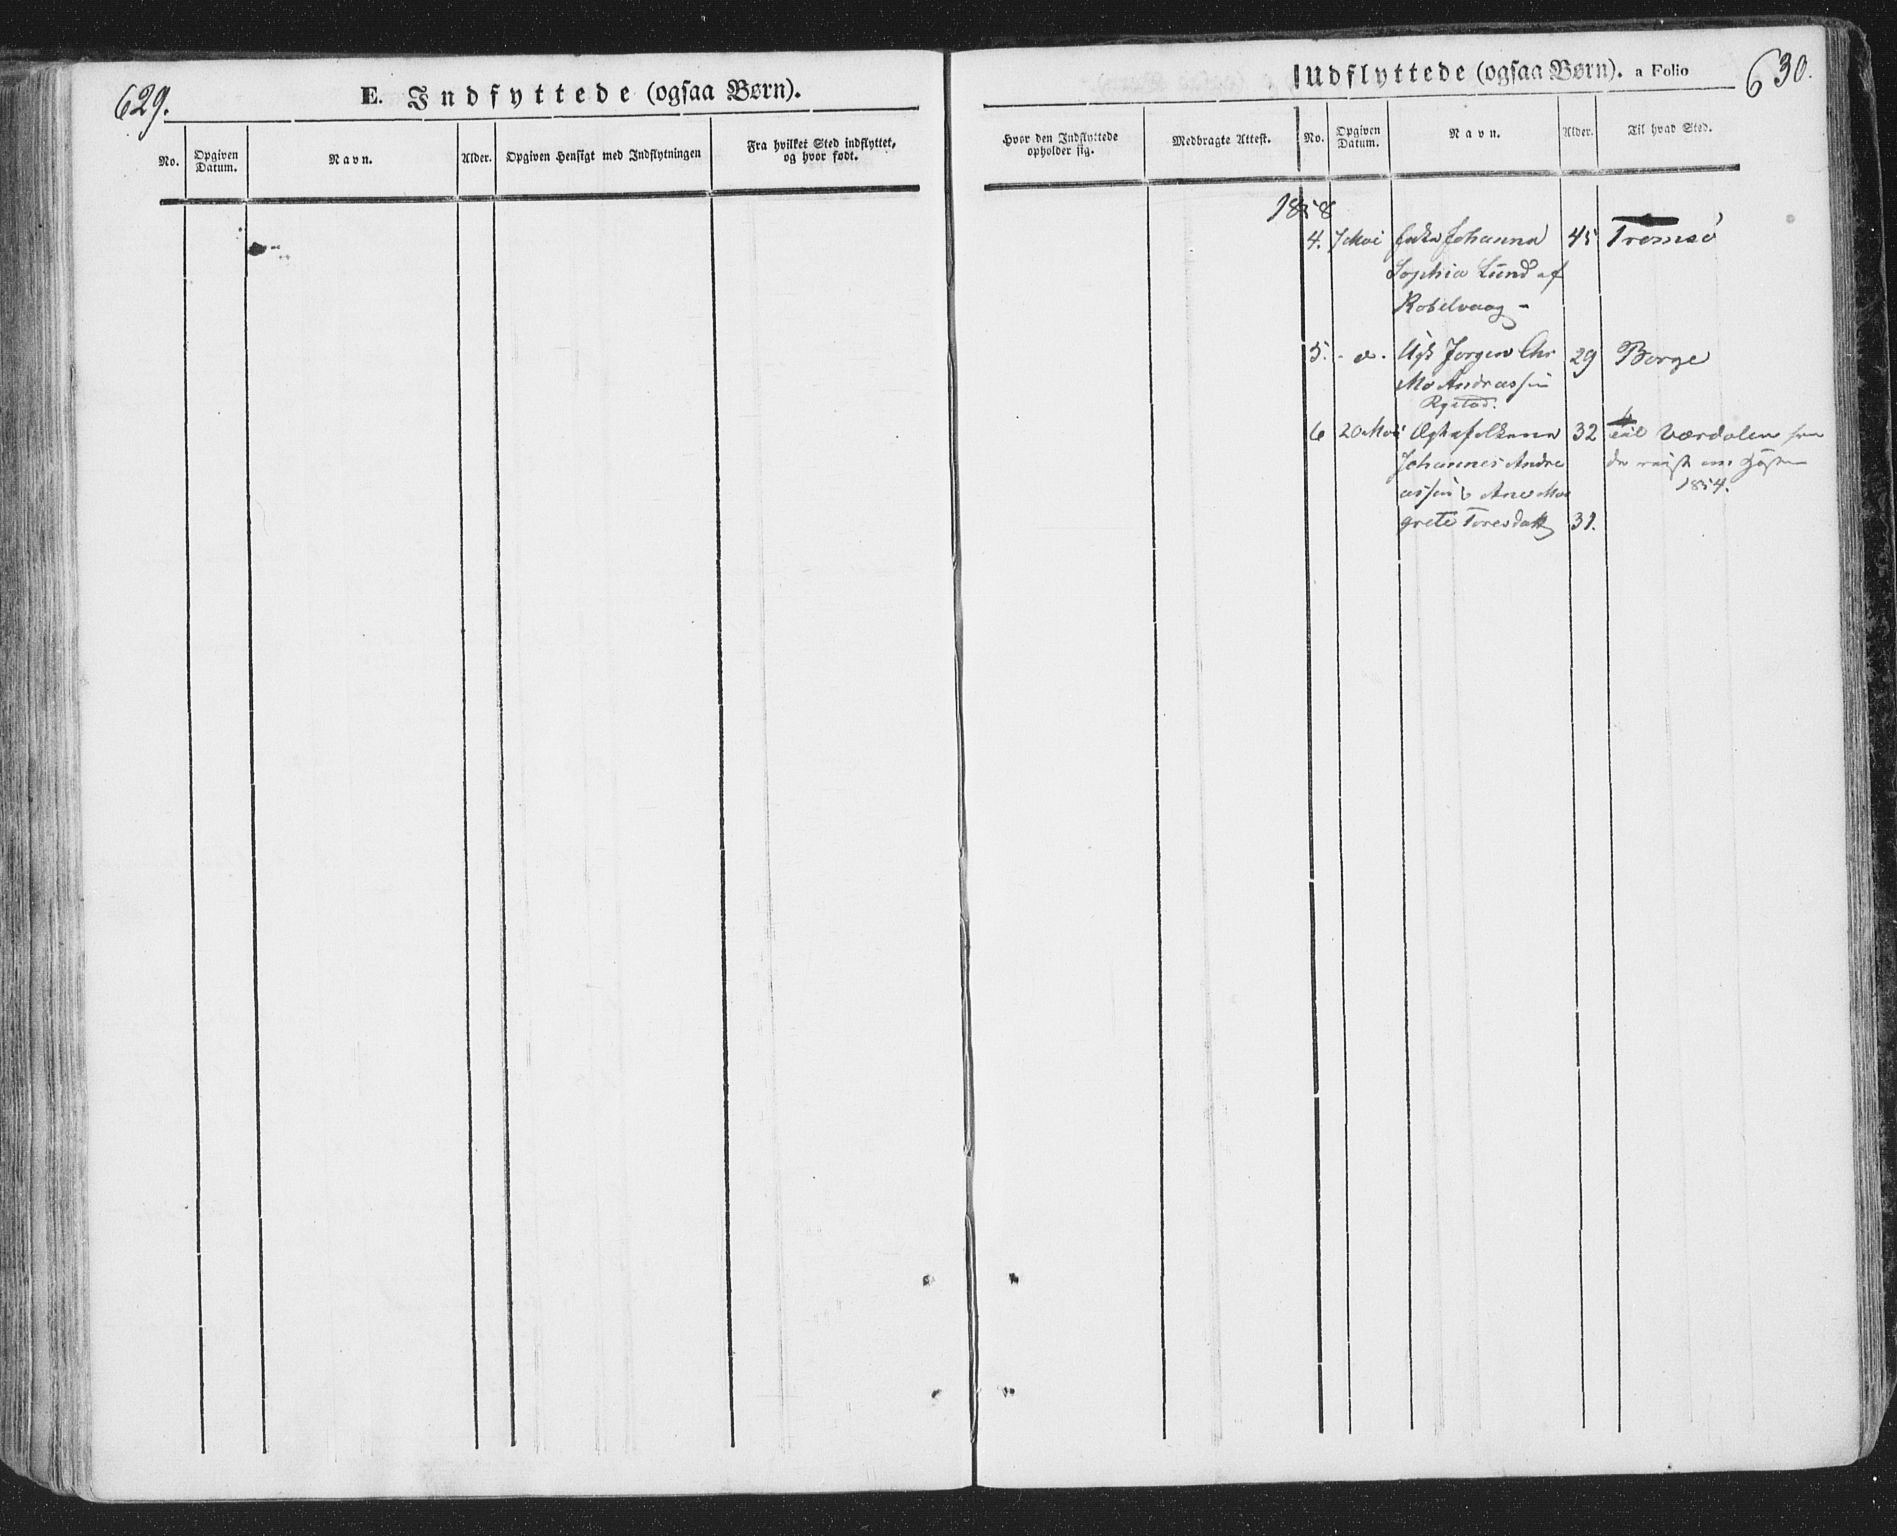 629.
E. Indfyttede (ogsaa Børn).
No.
Opgiven Datum.
Navn.
Alder.
Opgiven Hensigt med Indflytningen
Fra hvilket Sted indflyttet, og hvor født.
Udflyttede (ogsaa Børn). a Folio
630.
Hvor den Indflyttede opholder sig.
Medbragte Attest.
No.
Opgiven Datum.
Navn.
Alder.
Til hvad Sted.
1858
4. 7 Mai Enke Johanna 45 Tromsø
Sophia Lund af
Robelvaag -
5. - d. Ugk Jorgen Chr 29 Borge
Mo Andreassen
Rystad.
6 20 Mai Ægtefolkene 32 til Værdalen
Johannes Andre
assen & Ane Mar
1854.
grete Toresdatt 31.